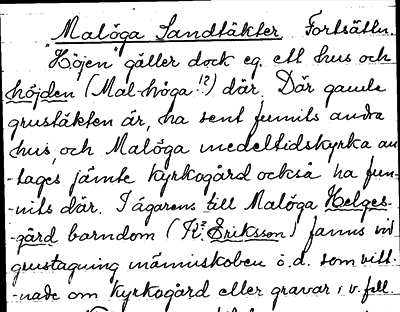 Malöga Sandtäkter Fortsättn.
"Höjen" gäller dock eg. ett hus och
höjden (Mal-höga!?) där. Där gamla
grustäkten är, ha sent funnits andra
hus, och Malöga medeltidskyrka an-
-tages jämte kyrkogård också ha fun-
-nits där. I ägarens till Malöga Helges-
-gård barndom (Kr. Eriksson) fanns vid
grustagning människoben o.d. som vitt-
-nade om kyrkogård eller gravar i v. fall.